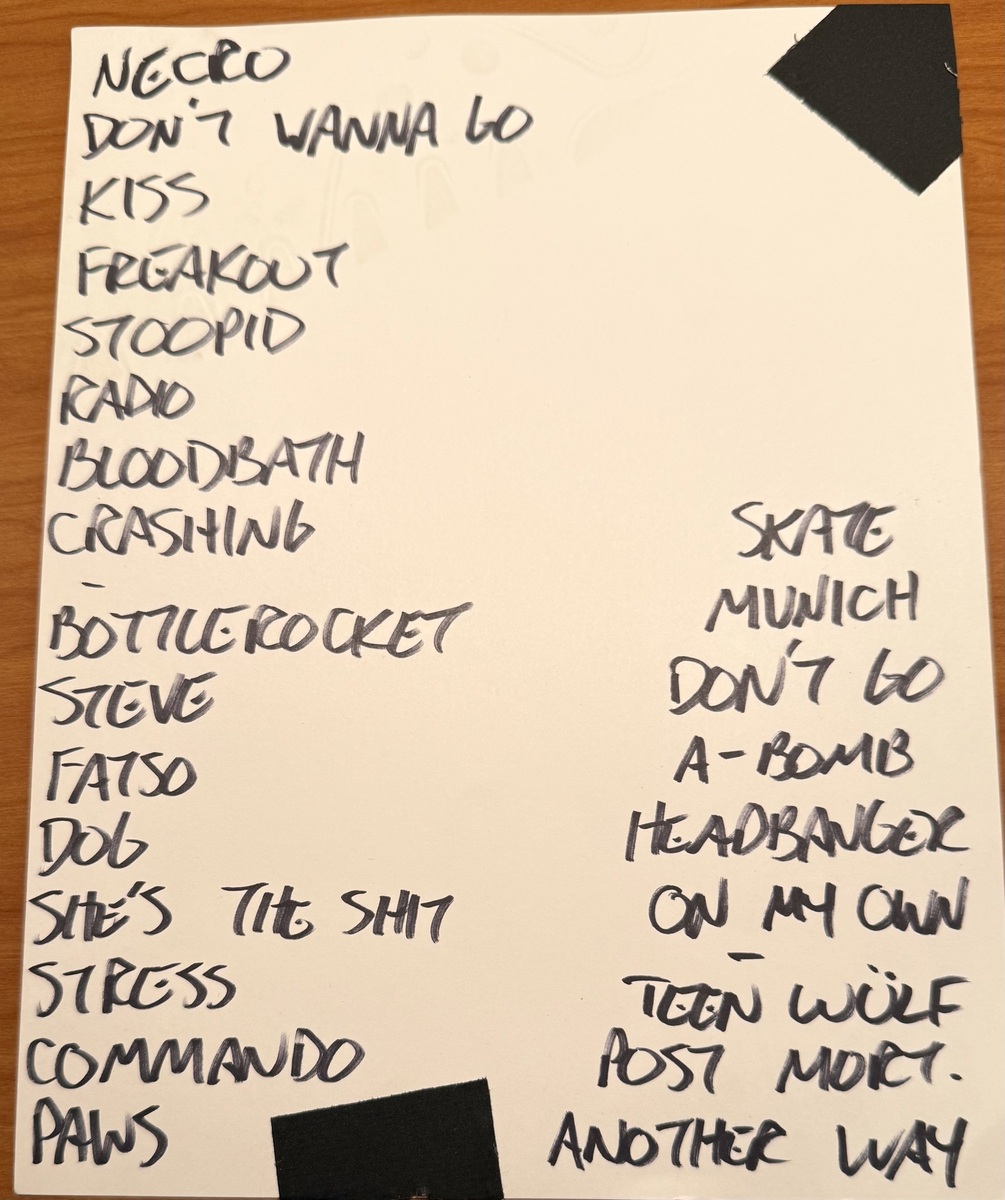 NECRO
DON'T WANNA GO
KISS
FREAKOUT
STOOPID
RADIO
BLOODBATH
CRASHING
-
BOTTLEROCKET
STEVE
FATSO
DOG
SHE'S THE SHIT
STRESS
COMMANDO
PAWS
SKATE
MUNICH
DON'T GO
A-BOMB
HEADBANGER
ON MY OWN
-
TEEN WÜLF
POST MORT.
ANOTHER WAY